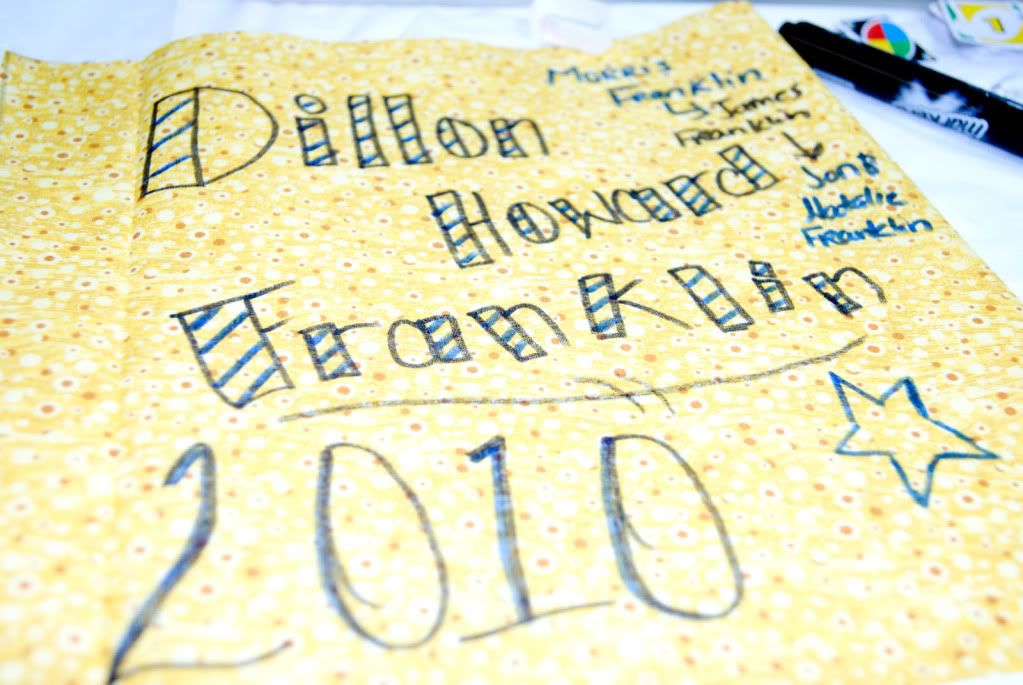 Dillon
Howard
Franklin
2010
Morris
Franklin
↳ James
Franklin
Jon &
Natalie
Franklin